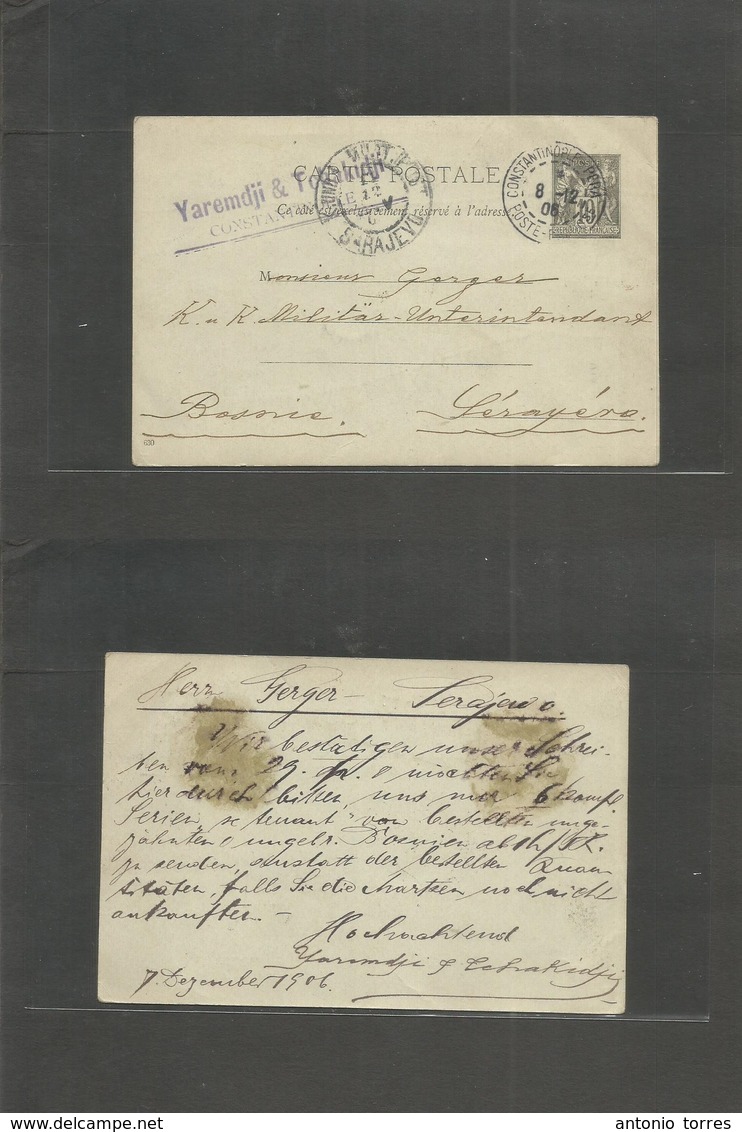 CARTE POSTALE
Ce côté est exclusivement réservé à l'adresse
Yaremdji & T
CONSTAN
MILIT. POST
SARAJEVO
CONSTANTINOPLE PERA
8 12
06
POSTE
REPUBLIQUE FRANÇAISE
Monsieur Gerger
K. u K. Militär-Unterintendant
Bosnie. Sérayévo.
630
Herr Gerger Serajevo.
Wir bestätigen unser Schrei-
ben vom 29. & möchten Sie
hierdurch bitten, uns nur 6 kompl.
Serien "se tenant" von bestellten unge-
zähnten & ungebr. Bosnien
zu senden, anstatt der bestellten Quan
titäten, falls Sie die Marken noch nicht
ankauften. -
Hochachtend
Yaremdji & Tchakidji
7 Dezember 1906.
antonio torres